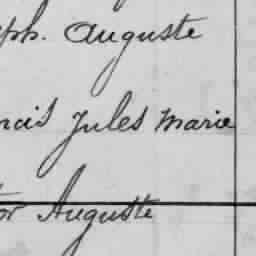 ph. Auguste
ncis Jules Marie
or Auguste